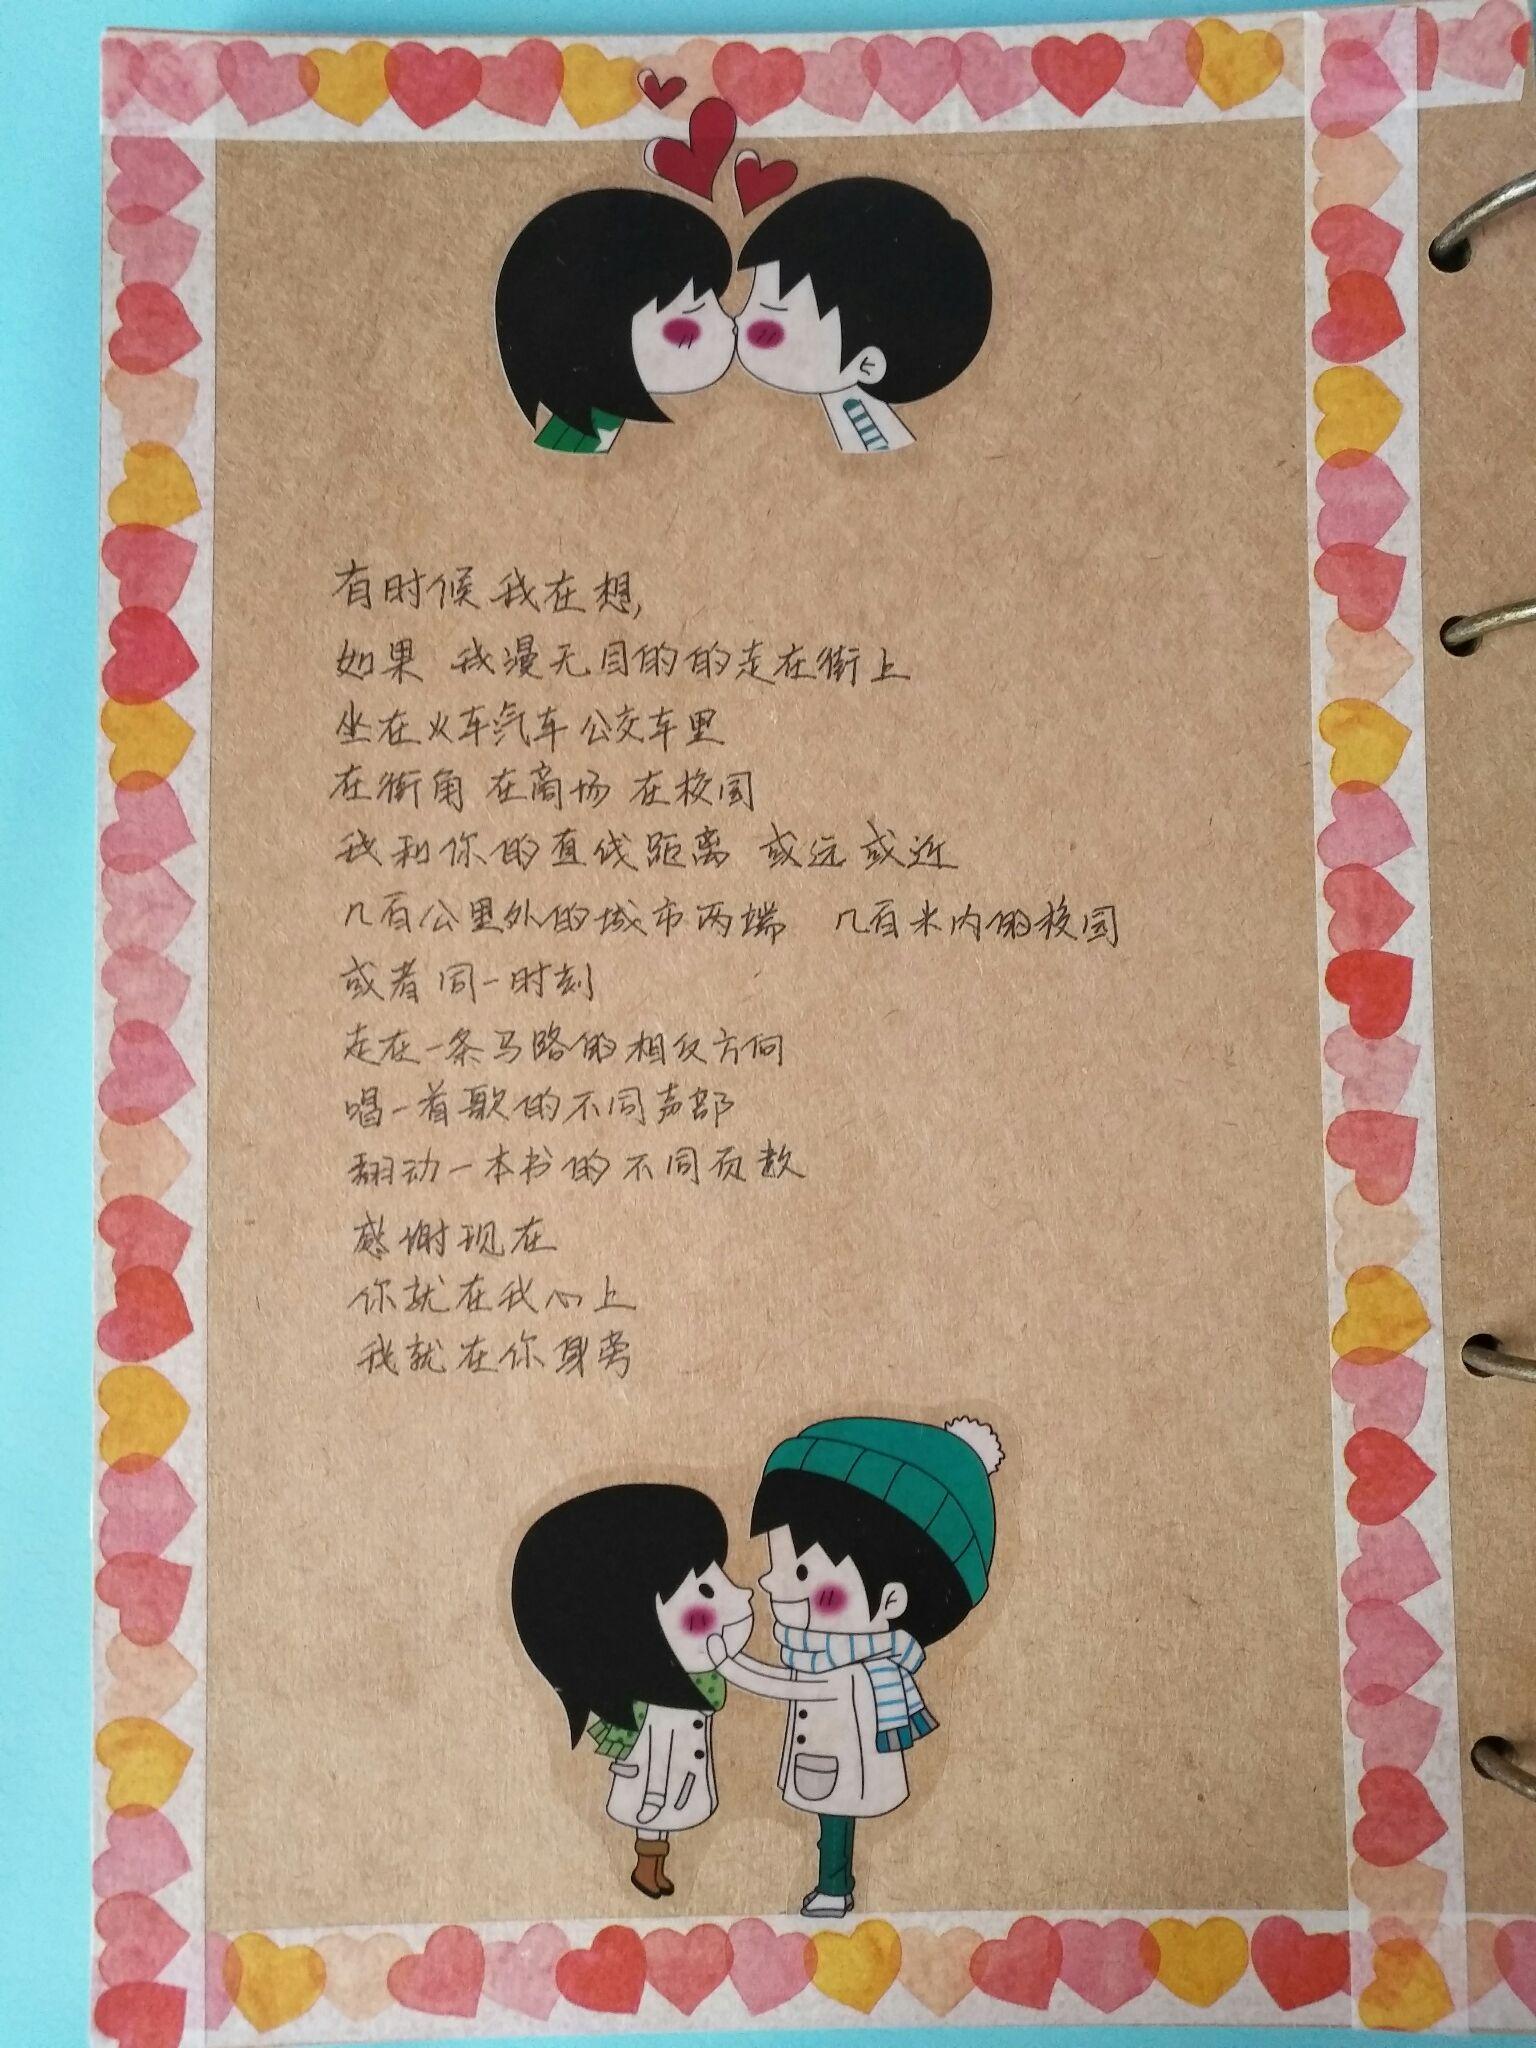 有时候 我在想,
如果 我漫无目的的走在街上
坐在火车汽车公交车里
在街角 在商场 在校园
我和你的直线距离 或远或近
几百公里外的城市两端 几百米内的校园
或者同一时刻
走在一条马路的相反方向
唱一首歌的不同声部
翻动一本书的不同页数
感谢现在
你就在我心上
我就在你身旁